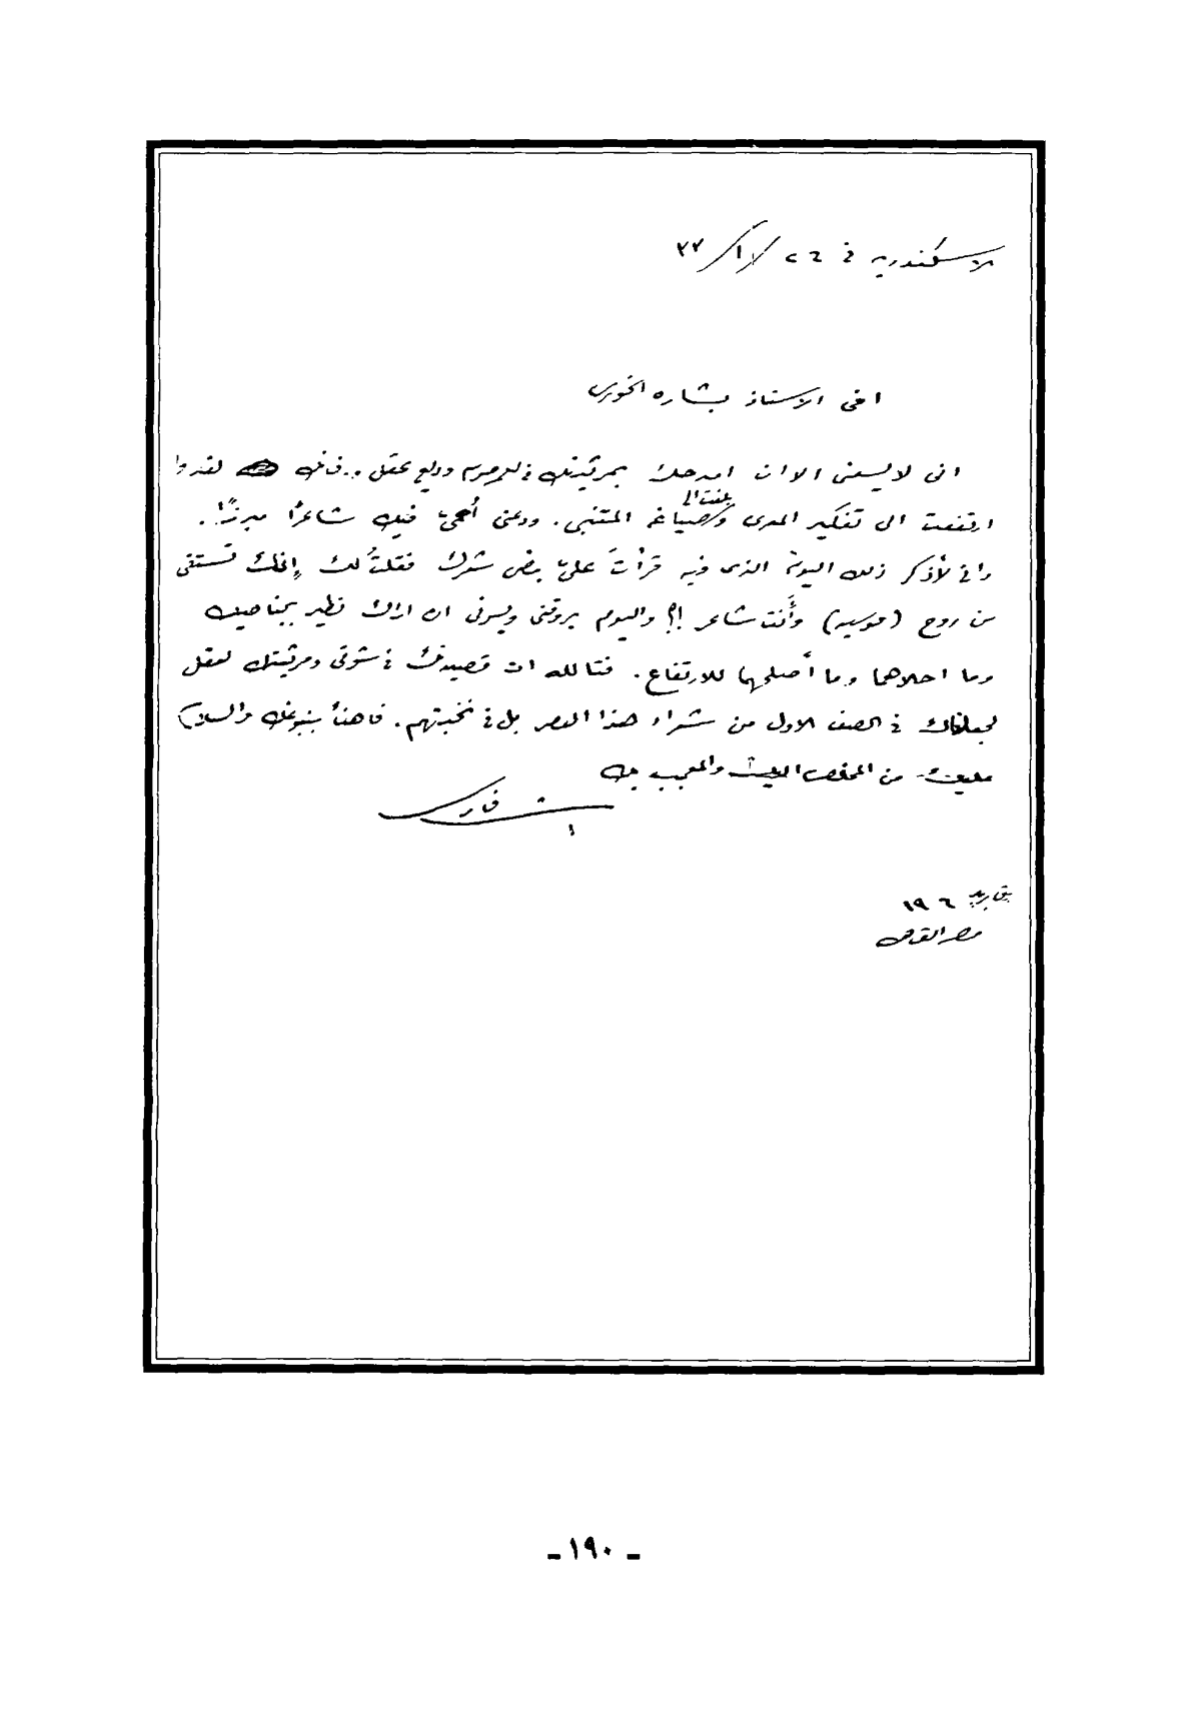 الاسكندريه في ٢٦ / ٣٣
اخي الاستاذ بشاره الخوري
اني لا يسعني الا ان امدحك بمرثيتك وديع عقل .. فانك لقد
ارتفعت الى تفكير المعري وبلغت الى صياغة المتنبي . ودعني أحيي فيك شاعرًا مبرزًا .
واني لأذكر ذلك اليوم الذي فيه قرأتَ عليّ بعض شعرك فقلتُ لك إنك تستقي
من روح (موسيه) وأنت شاعر !؟ واليوم يروقني ويسرني ان اراك تطير بجناحيك
وما احلاهما وما أصلحهما للارتفاع . فتالله ان قصيدتك في شوقي ومرثيتك لعقل
لجعلتاك في الصف الاول من شعراء هذا العصر بل في نخبتهم . فاهنأ بنبوغك والسلام
عليك من المخلص اليك والمعجب بك
فارس
ص بريد ١٩٠٦
مصر القاهرة
- ١٩٠ -